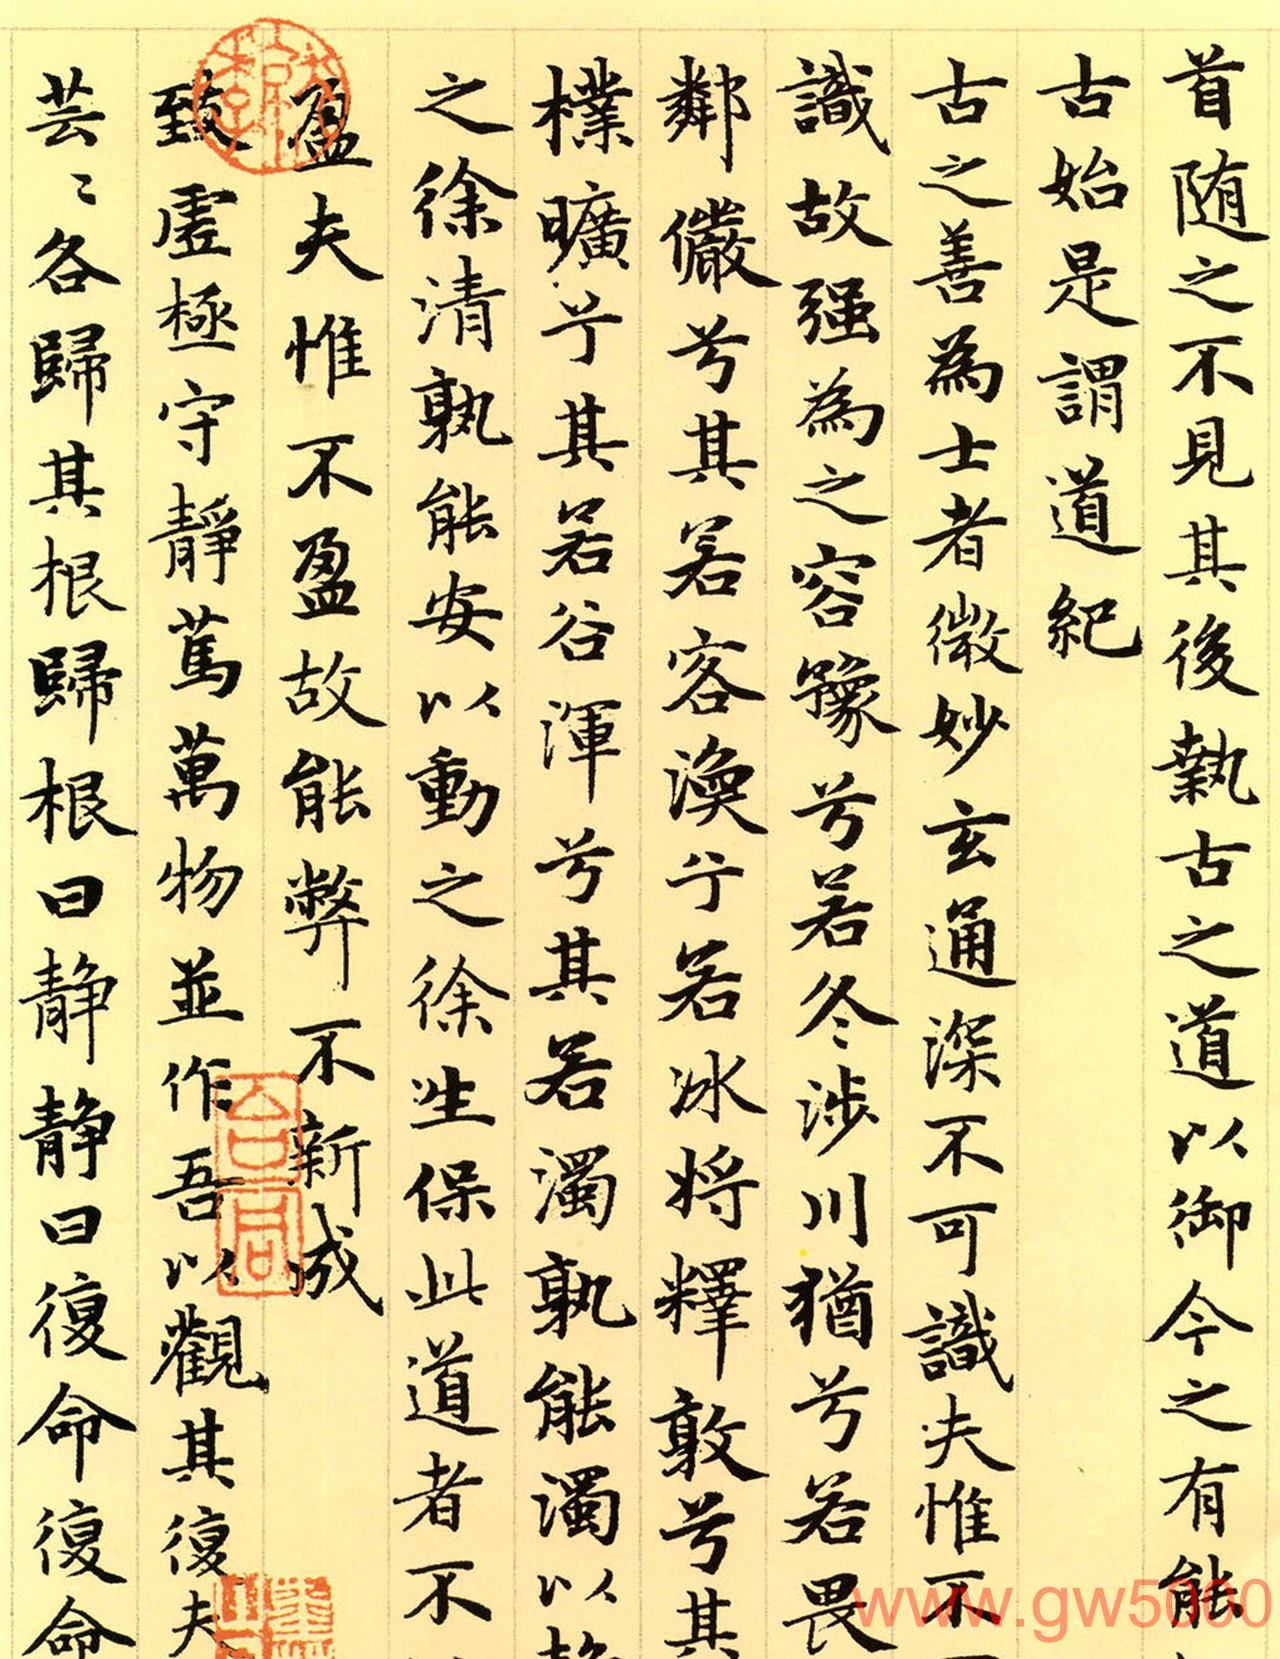 首随之不見其後執古之道以御今之有能
古始是謂道紀
古之善為士者微妙玄通深不可識夫惟不
識故强為之容豫兮若冬涉川猶兮若畏
鄰儼兮其若客渙兮若冰將釋敦兮其
樸曠兮其若谷渾兮其若濁孰能濁以静
之徐清孰能安以動之徐生保此道者不
盈夫惟不盈故能弊不新成
致虛極守靜篤萬物並作吾以觀其復夫
芸〻各歸其根歸根曰静静曰復命復命
www.gw5000